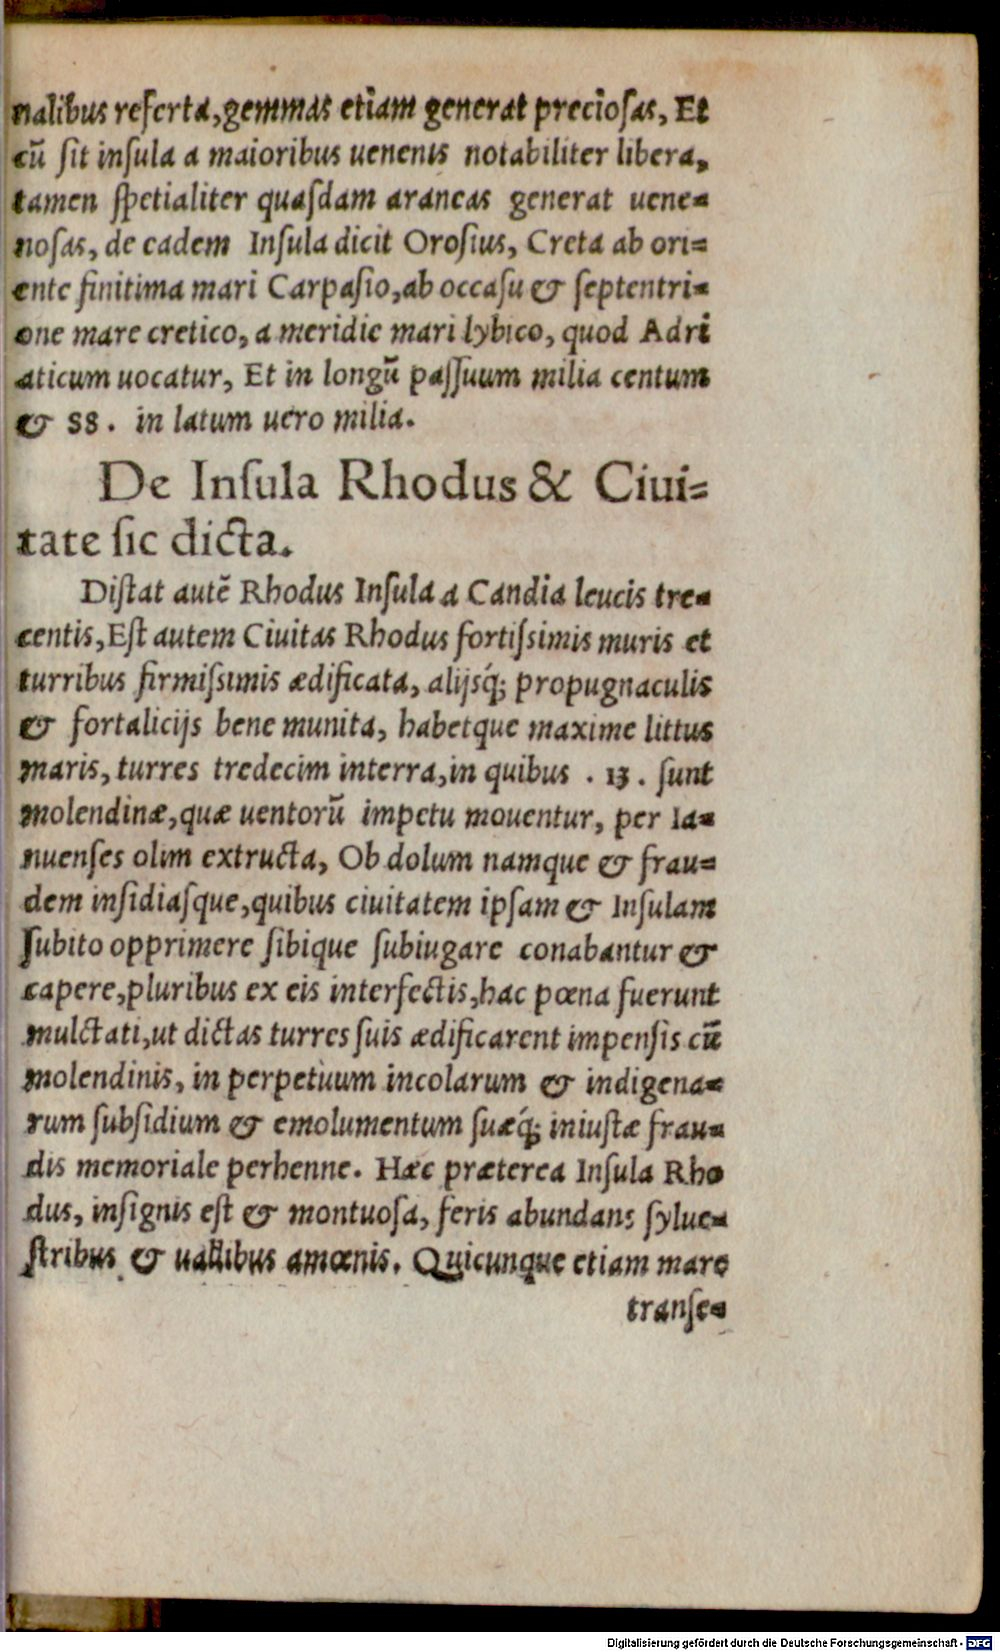 nalibus referta, gemmas etiam generat preciosas, Et
cũ sit insula a maioribus uenenis notabiliter libera,
tamen spetialiter quasdam araneas generat uene=
nosas, de eadem Insula dicit Orosius, Creta ab ori=
ente finitima mari Carpasio, ab occasu & septentri=
one mare cretico, a meridie mari lybico, quod Adri
aticum uocatur, Et in longũ passuum milia centum
& 88. in latum uero milia.
De Insula Rhodus & Ciui=
tate sic dicta.
Distat autẽ Rhodus Insula a Candia leucis tre=
centis, Est autem Ciuitas Rhodus fortissimis muris et
turribus firmissimis ædificata, alijsq́; propugnaculis
& fortalicijs bene munita, habetque maxime littus
maris, turres tredecim interra, in quibus . 13 . sunt
molendinæ, quæ uentorũ impetu mouentur, per Ia=
nuenses olim extructa, Ob dolum namque & frau=
dem insidiasque, quibus ciuitatem ipsam & Insulam
subito opprimere sibique subiugare conabantur &
capere, pluribus ex eis interfectis, hac pœna fuerunt
mulctati, ut dictas turres suis ædificarent impensis cũ
molendinis, in perpetuum incolarum & indigena=
rum subsidium & emolumentum suæq́; iniustæ frau=
dis memoriale perhenne. Hæc præterea Insula Rho
dus, insignis est & montuosa, feris abundans sylue=
stribus & uallibus amœnis. Quicunque etiam mare
transe=
Digitalisierung gefördert durch die Deutsche Forschungsgemeinschaft - DFG